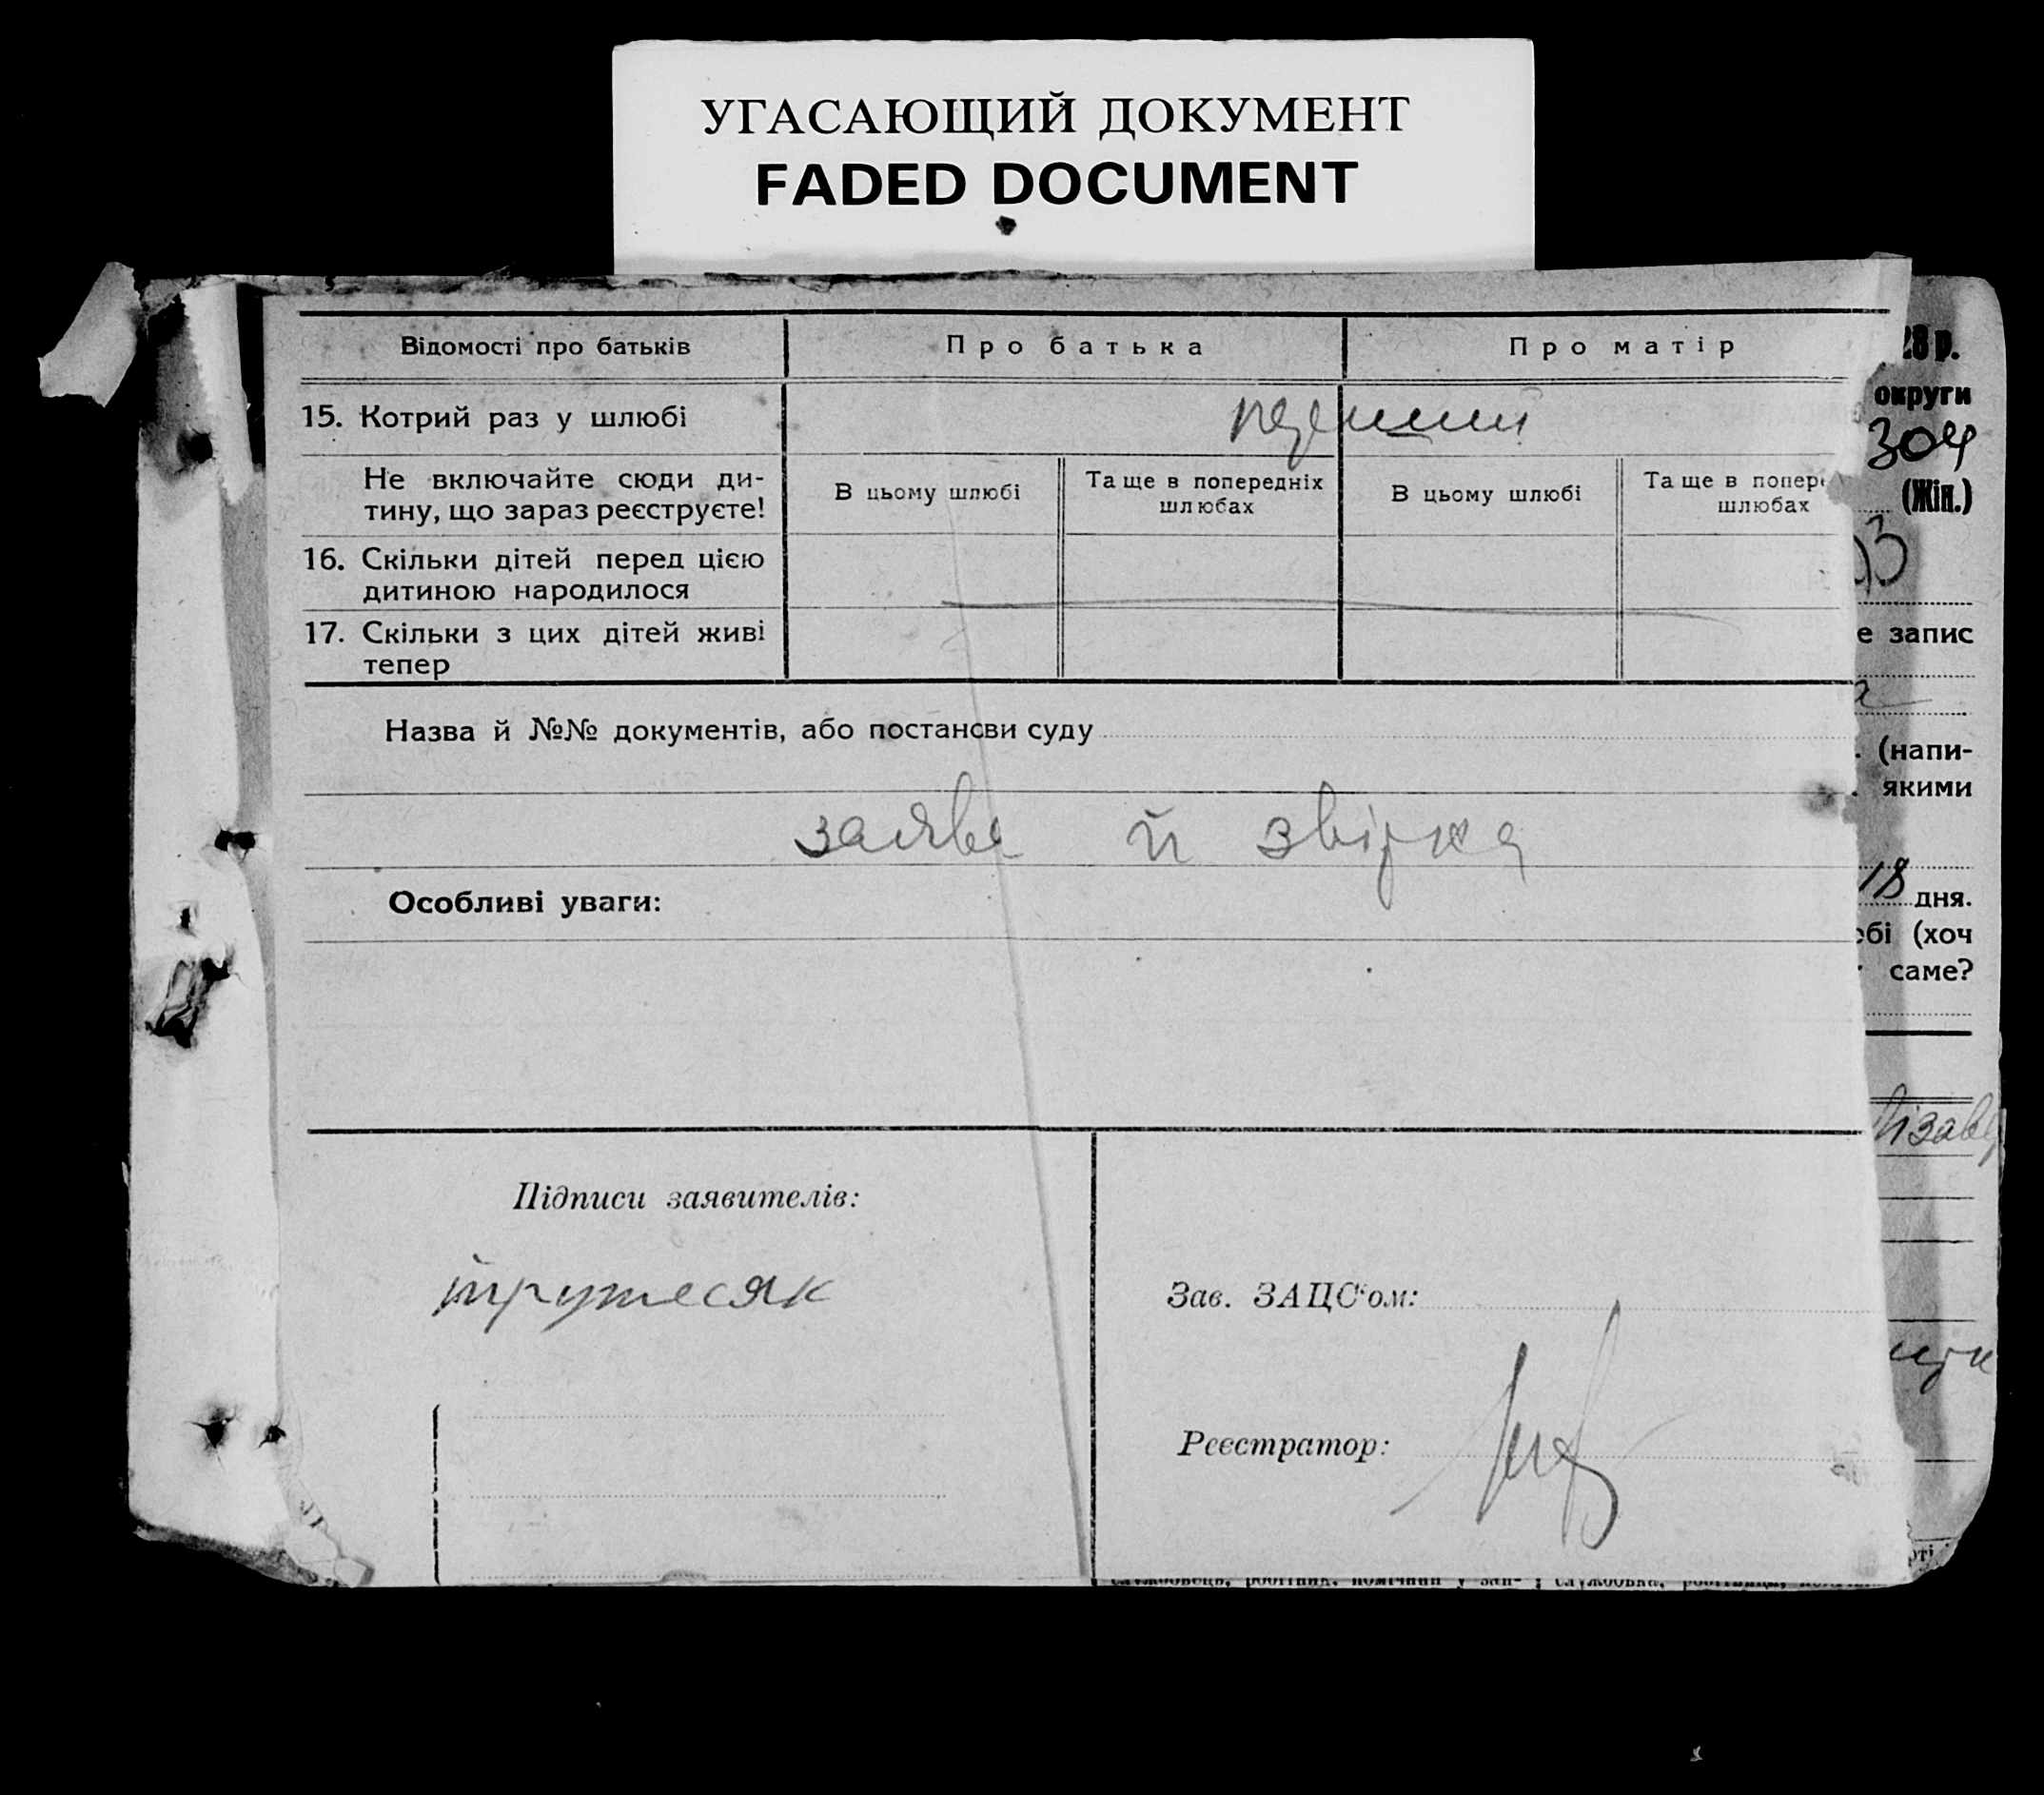 УГАСАЮЩИЙ ДОКУМЕНТ
FADED DOCUMENT
Відомості про батьків
Про батька
Про матір
15. Котрий раз у шлюбі
перший
Не включайте сюди ди-
тину, що зараз реєструєте!
В цьому шлюбі
Та ще в попередніх
шлюбах
В цьому шлюбі
Та ще в попер
шлюбах
16. Скільки дітей перед цією
дитиною народилося
17. Скільки з цих дітей живі
тепер
Назва й №№ документів, або постанови суду
заява й звірка
Особливі уваги:
Підписи заявителів:
Зав. ЗАЦС'ом:
Реєстратор:
28 р.
округи
304
(Жін.)
е запис
(напи-
якими
18 дня.
бі (хоч
саме?